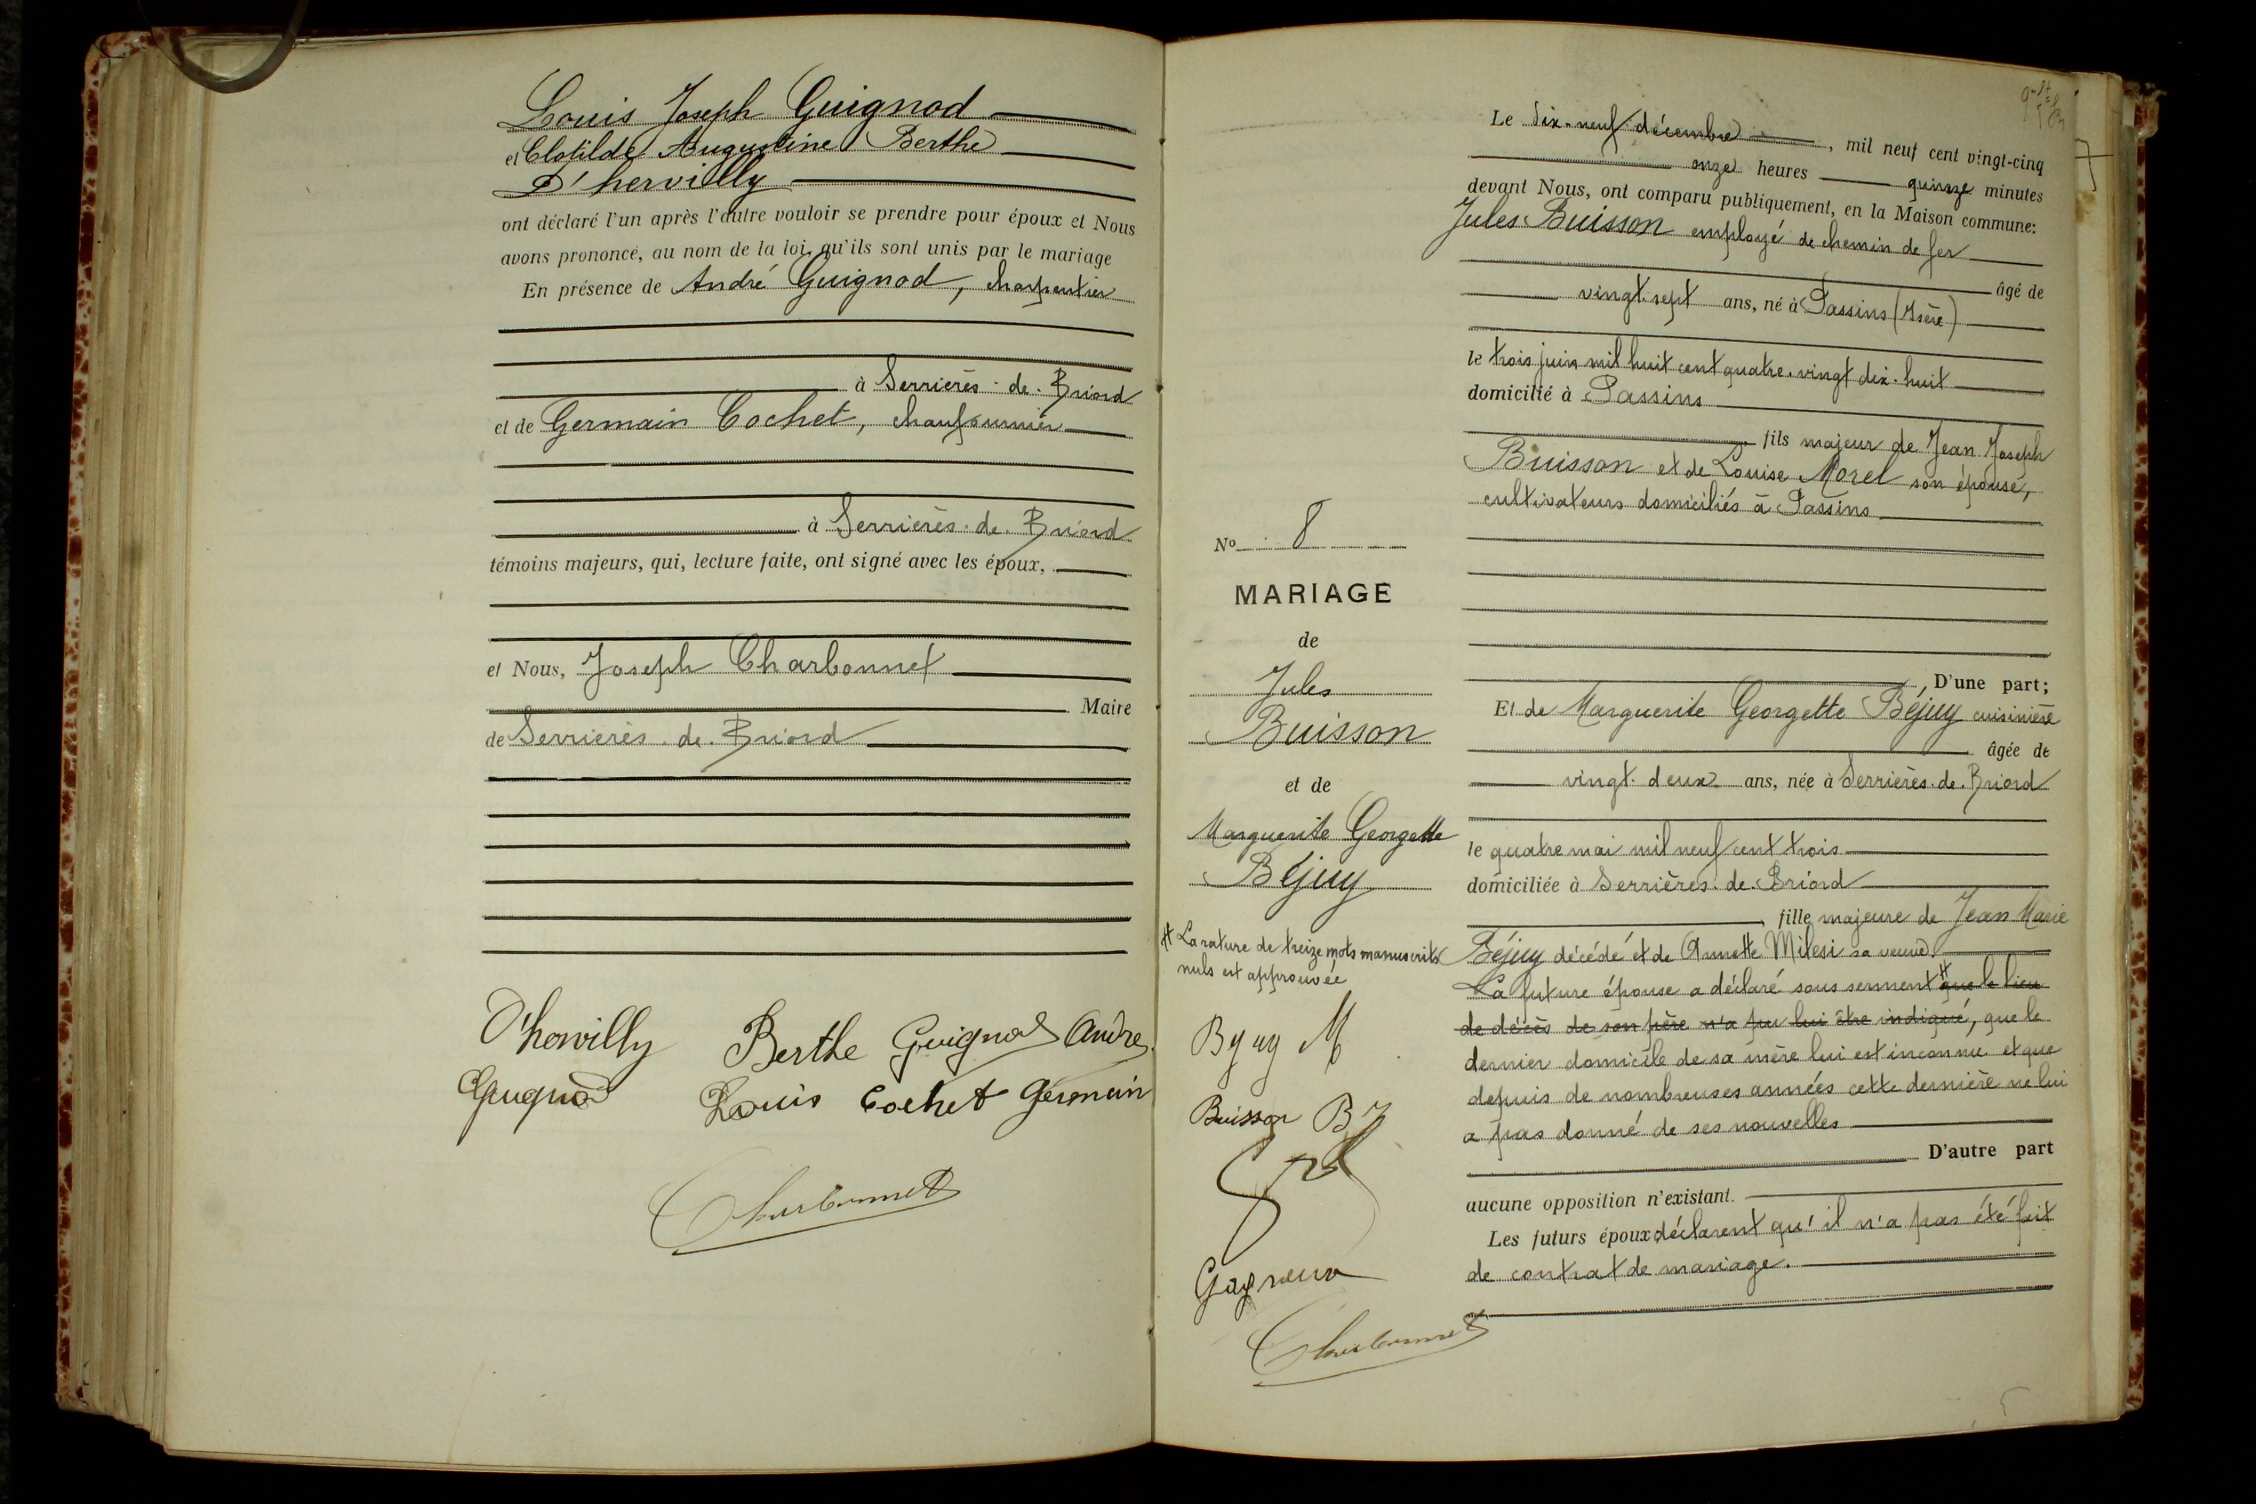 Louis Joseph Guignod
et Clotilde Augustine Berthe
D'hervilly
ont déclaré l'un après l'autre vouloir se prendre pour époux et Nous
avons prononcé, au nom de la loi, qu'ils sont unis par le mariage
En présence de André Guignod, charpentier
à Serrières-de-Briord
et de Germain Cochet, chaufournier
à Serrières-de-Briord
témoins majeurs, qui, lecture faite, ont signé avec les époux,
et Nous, Joseph Charbonnet
Maire
de Serrières-de-Briord
D'hervilly Berthe Guignod André
Guignod Louis Cochet Germain
Charbonnet
No 8
MARIAGE
de
Jules
Buisson
et de
Marguerite Georgette
Béjuy
# La rature de treize mots manuscrits
nuls est approuvée
Bejuy M
Buisson
Gagneux
Charbonnet
Le dix-neuf décembre, mil neuf cent vingt-cinq
onze heures quinze minutes
devant Nous, ont comparu publiquement, en la Maison commune:
Jules Buisson employé de chemin de fer
âgé de
vingt-sept ans, né à Passins (Isère)
le trois juin mil huit cent quatre-vingt dix-huit
domicilié à Passins
fils majeur de Jean Joseph
Buisson et de Louise Morel son épouse,
cultivateurs domiciliés à Passins
D'une part;
Et de Marguerite Georgette Béjuy cuisinière
âgée de
vingt-deux ans, née à Serrières-de-Briord
le quatre mai mil neuf cent trois
domiciliée à Serrières-de-Briord
fille majeure de Jean Marie
Béjuy décédé et de Annette Milesi sa veuve.
La future épouse a déclaré sous serment # que le lieu
de décès de son père n'a pu lui être indiqué, que le
dernier domicile de sa mère lui est inconnu et que
depuis de nombreuses années cette dernière ne lui
a pas donné de ses nouvelles
D'autre part
aucune opposition n'existant.
Les futurs époux déclarent qu'il n'a pas été fait
de contrat de mariage.